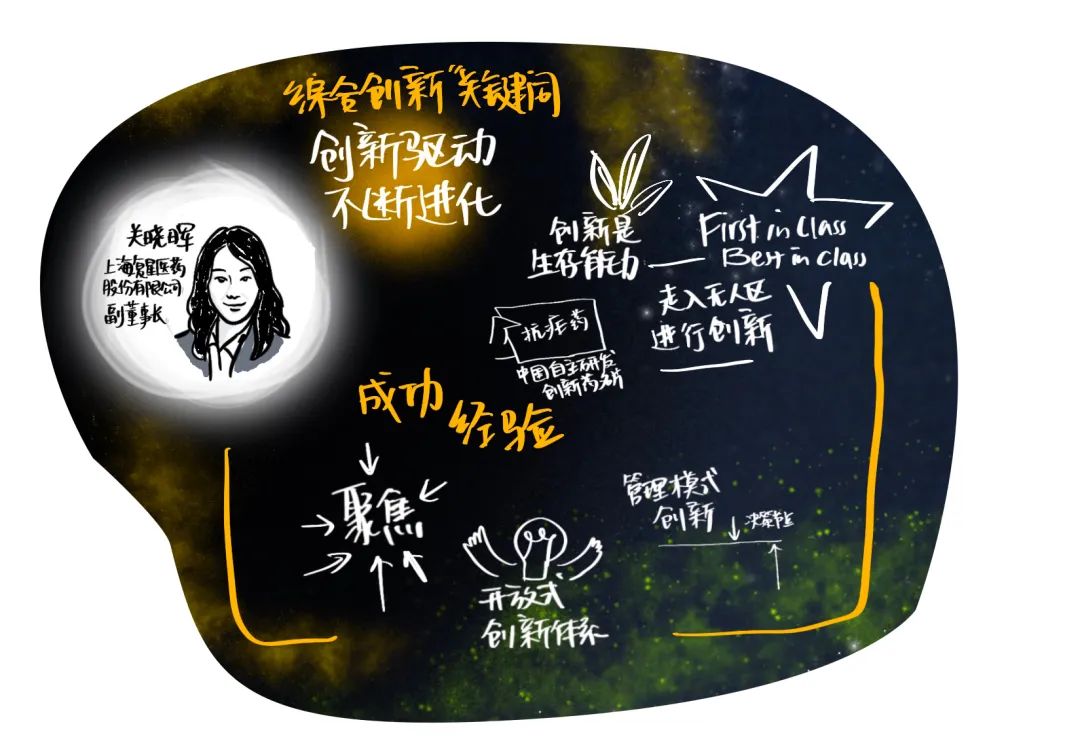 综合创新"关键词
创新驱动
不断进化
关晓晖
上海复星医药
股份有限公司
副董事长
创新是
生存能力
First in Class
Best in Class
走入无人区
进行创新
抗疟药
中国自主研发
成功
经验
聚焦
开放式
创新体系
管理模式
创新